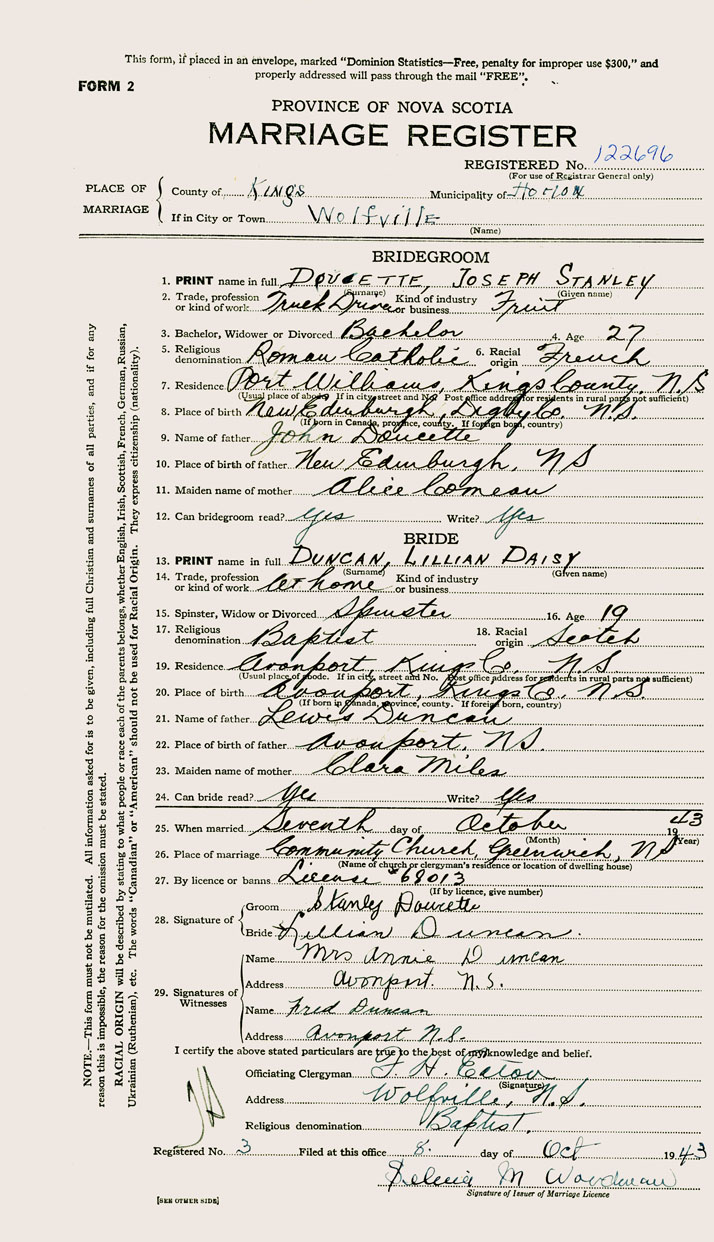 This form, if placed in an envelope, marked "Dominion Statistics—Free, penalty for improper use $300," and
properly addressed will pass through the mail "FREE".
FORM 2
PROVINCE OF NOVA SCOTIA
MARRIAGE REGISTER
REGISTERED No. 122696
(For use of Registrar General only)
PLACE OF MARRIAGE
County of Kings Municipality of Horton
If in City or Town Wolfville
(Name)
BRIDEGROOM
1. PRINT name in full DOUCETTE, JOSEPH STANLEY
(Surname) (Given name)
2. Trade, profession or kind of work Truck Driver Kind of industry or business Fruit
3. Bachelor, Widower or Divorced Bachelor 4. Age 27
5. Religious denomination Roman Catholic 6. Racial origin French
7. Residence Port Williams, Kings County, N.S
(Usual place of abode? If in city, street and No? Post office address for residents in rural parts not sufficient)
8. Place of birth New Edinburgh, Digby Co. N.S.
(If born in Canada, province, county. If foreign born, country)
9. Name of father John Doucette
10. Place of birth of father New Edinburgh, NS
11. Maiden name of mother Alice Comeau
12. Can bridegroom read? yes Write? yes
BRIDE
13. PRINT name in full DUNCAN, LILLIAN DAISY
(Surname) (Given name)
14. Trade, profession or kind of work At home Kind of industry or business
15. Spinster, Widow or Divorced Spinster 16. Age 19
17. Religious denomination Baptist 18. Racial origin Scotch
19. Residence Avonport, Kings Co. N.S
(Usual place of abode. If in city, street and No. Post office address for residents in rural parts not sufficient)
20. Place of birth Avonport, Kings Co. N.S.
(If born in Canada, province, county. If foreign born, country)
21. Name of father Lewis Duncan
22. Place of birth of father Avonport, NS.
23. Maiden name of mother Clara Miles
24. Can bride read? Yes Write? Yes
25. When married Seventh day of October 1943
(Month) (Year)
26. Place of marriage Community Church Greenwich, NS
(Name of church or clergyman's residence or location of dwelling house)
27. By licence or banns License #68013
(If by licence, give number)
28. Signature of
Groom Stanley Doucette
Bride Lillian Duncan.
29. Signatures of Witnesses
Name Mrs Annie Duncan
Address Avonport. N.S.
Name Fred Duncan
Address Avonport N.S.
I certify the above stated particulars are true to the best of my knowledge and belief.
Officiating Clergyman F. H. Eaton
(Signature)
Address Wolfville, N.S.
Religious denomination Baptist.
Registered No. 3 Filed at this office 8. day of Oct 1943
M Woodman
Signature of Issuer of Marriage Licence
[SEE OTHER SIDE]
NOTE.—This form must not be mutilated. All information asked for is to be given, including full Christian and surnames of all parties, and if for any
reason this is impossible, the reason for the omission must be stated.
RACIAL ORIGIN will be described by stating to what people or race each of the parents belongs, whether English, Irish, Scottish, French, German, Russian,
Ukrainian (Ruthenian), etc. The words "Canadian" or "American" should not be used for Racial Origin. They express citizenship (nationality).